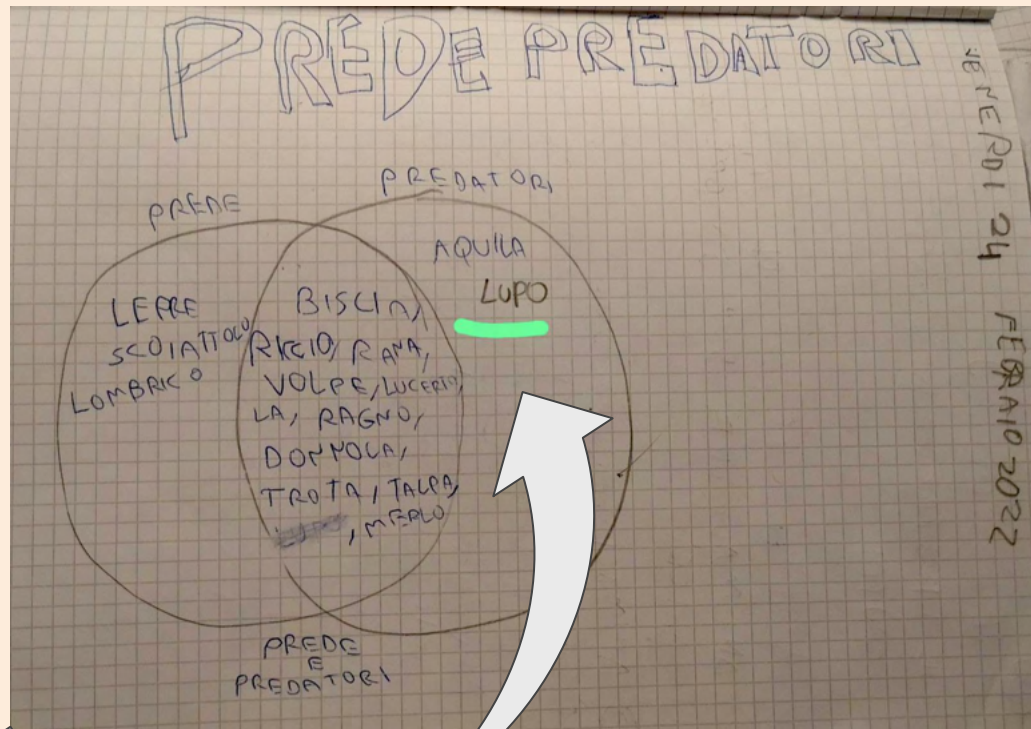 PREDE PREDATORI
VENERDI 24 FEBRAIO 2022
PREDE
PREDATORI
AQUILA
LUPO
LEPRE
SCOIATTOLO
LOMBRICO
BISCIA,
RICCIO, RANA,
VOLPE, LUCERTO
LA, RAGNO,
DONNOLA,
TROTA, TALPA,
, MERLO
PREDE
E
PREDATORI